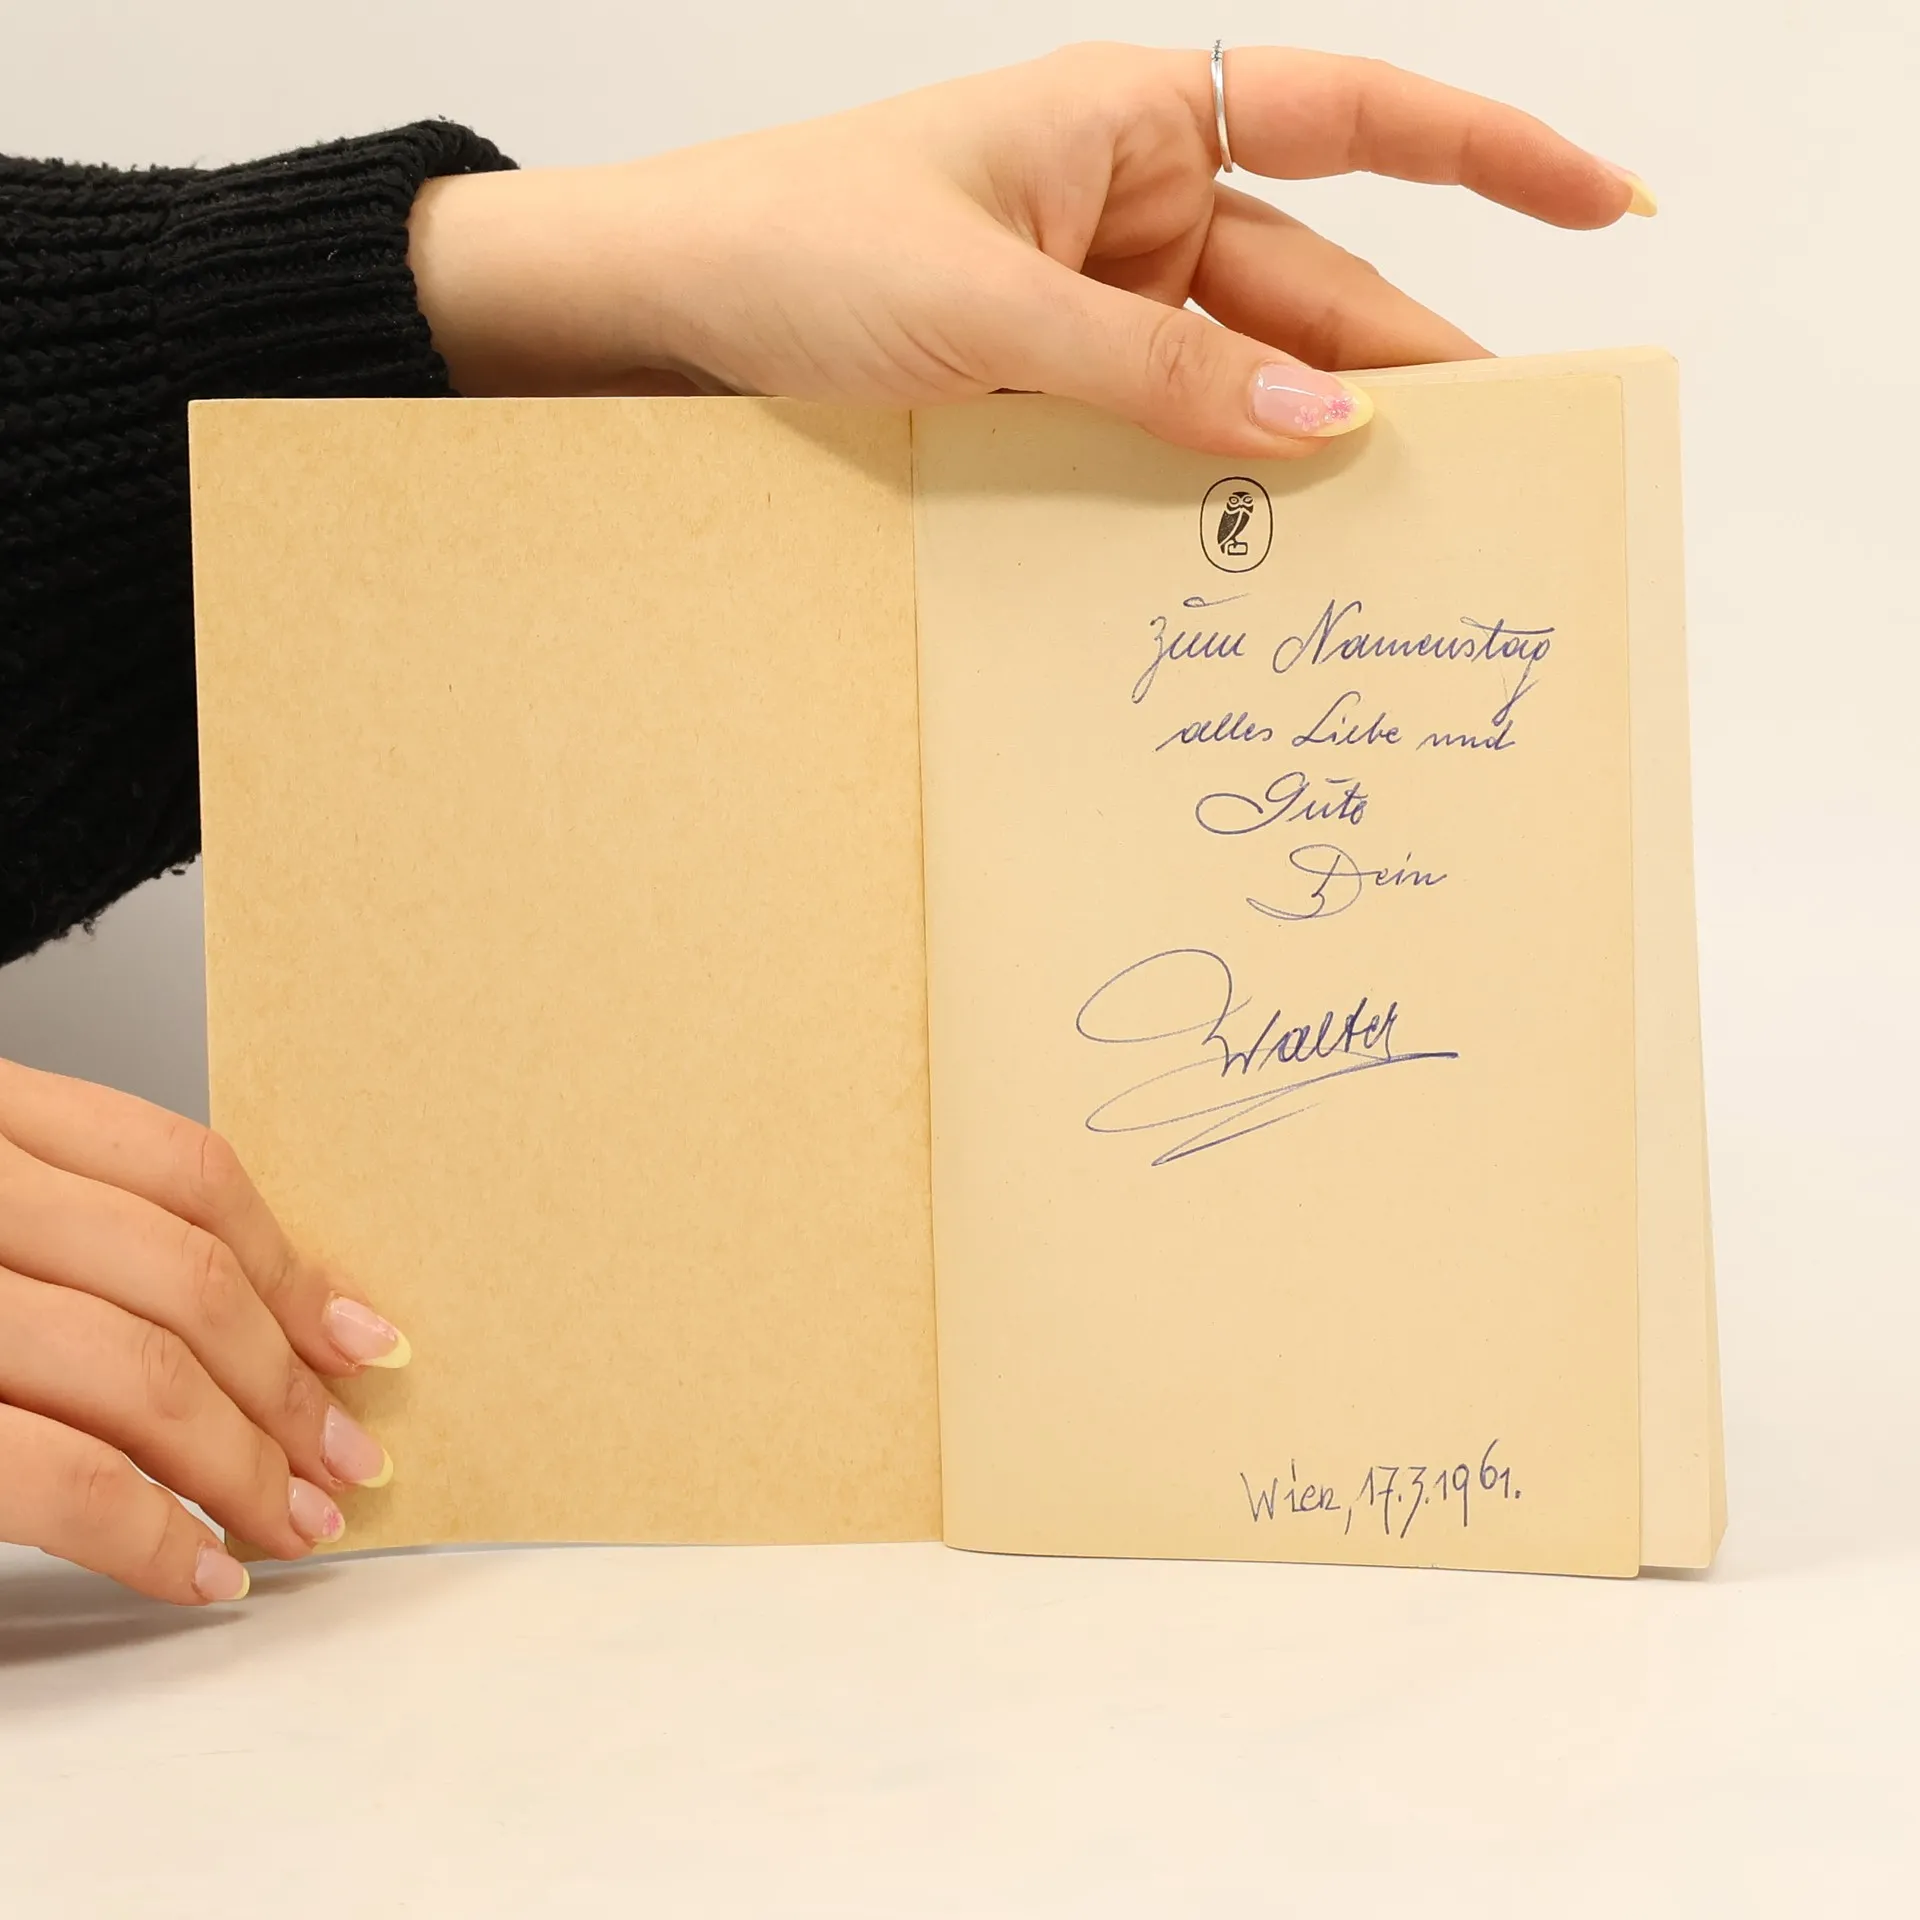 Zum Namenstag
alles Liebe und
Gute
Dein
Walter
Wien, 17.3.1961.